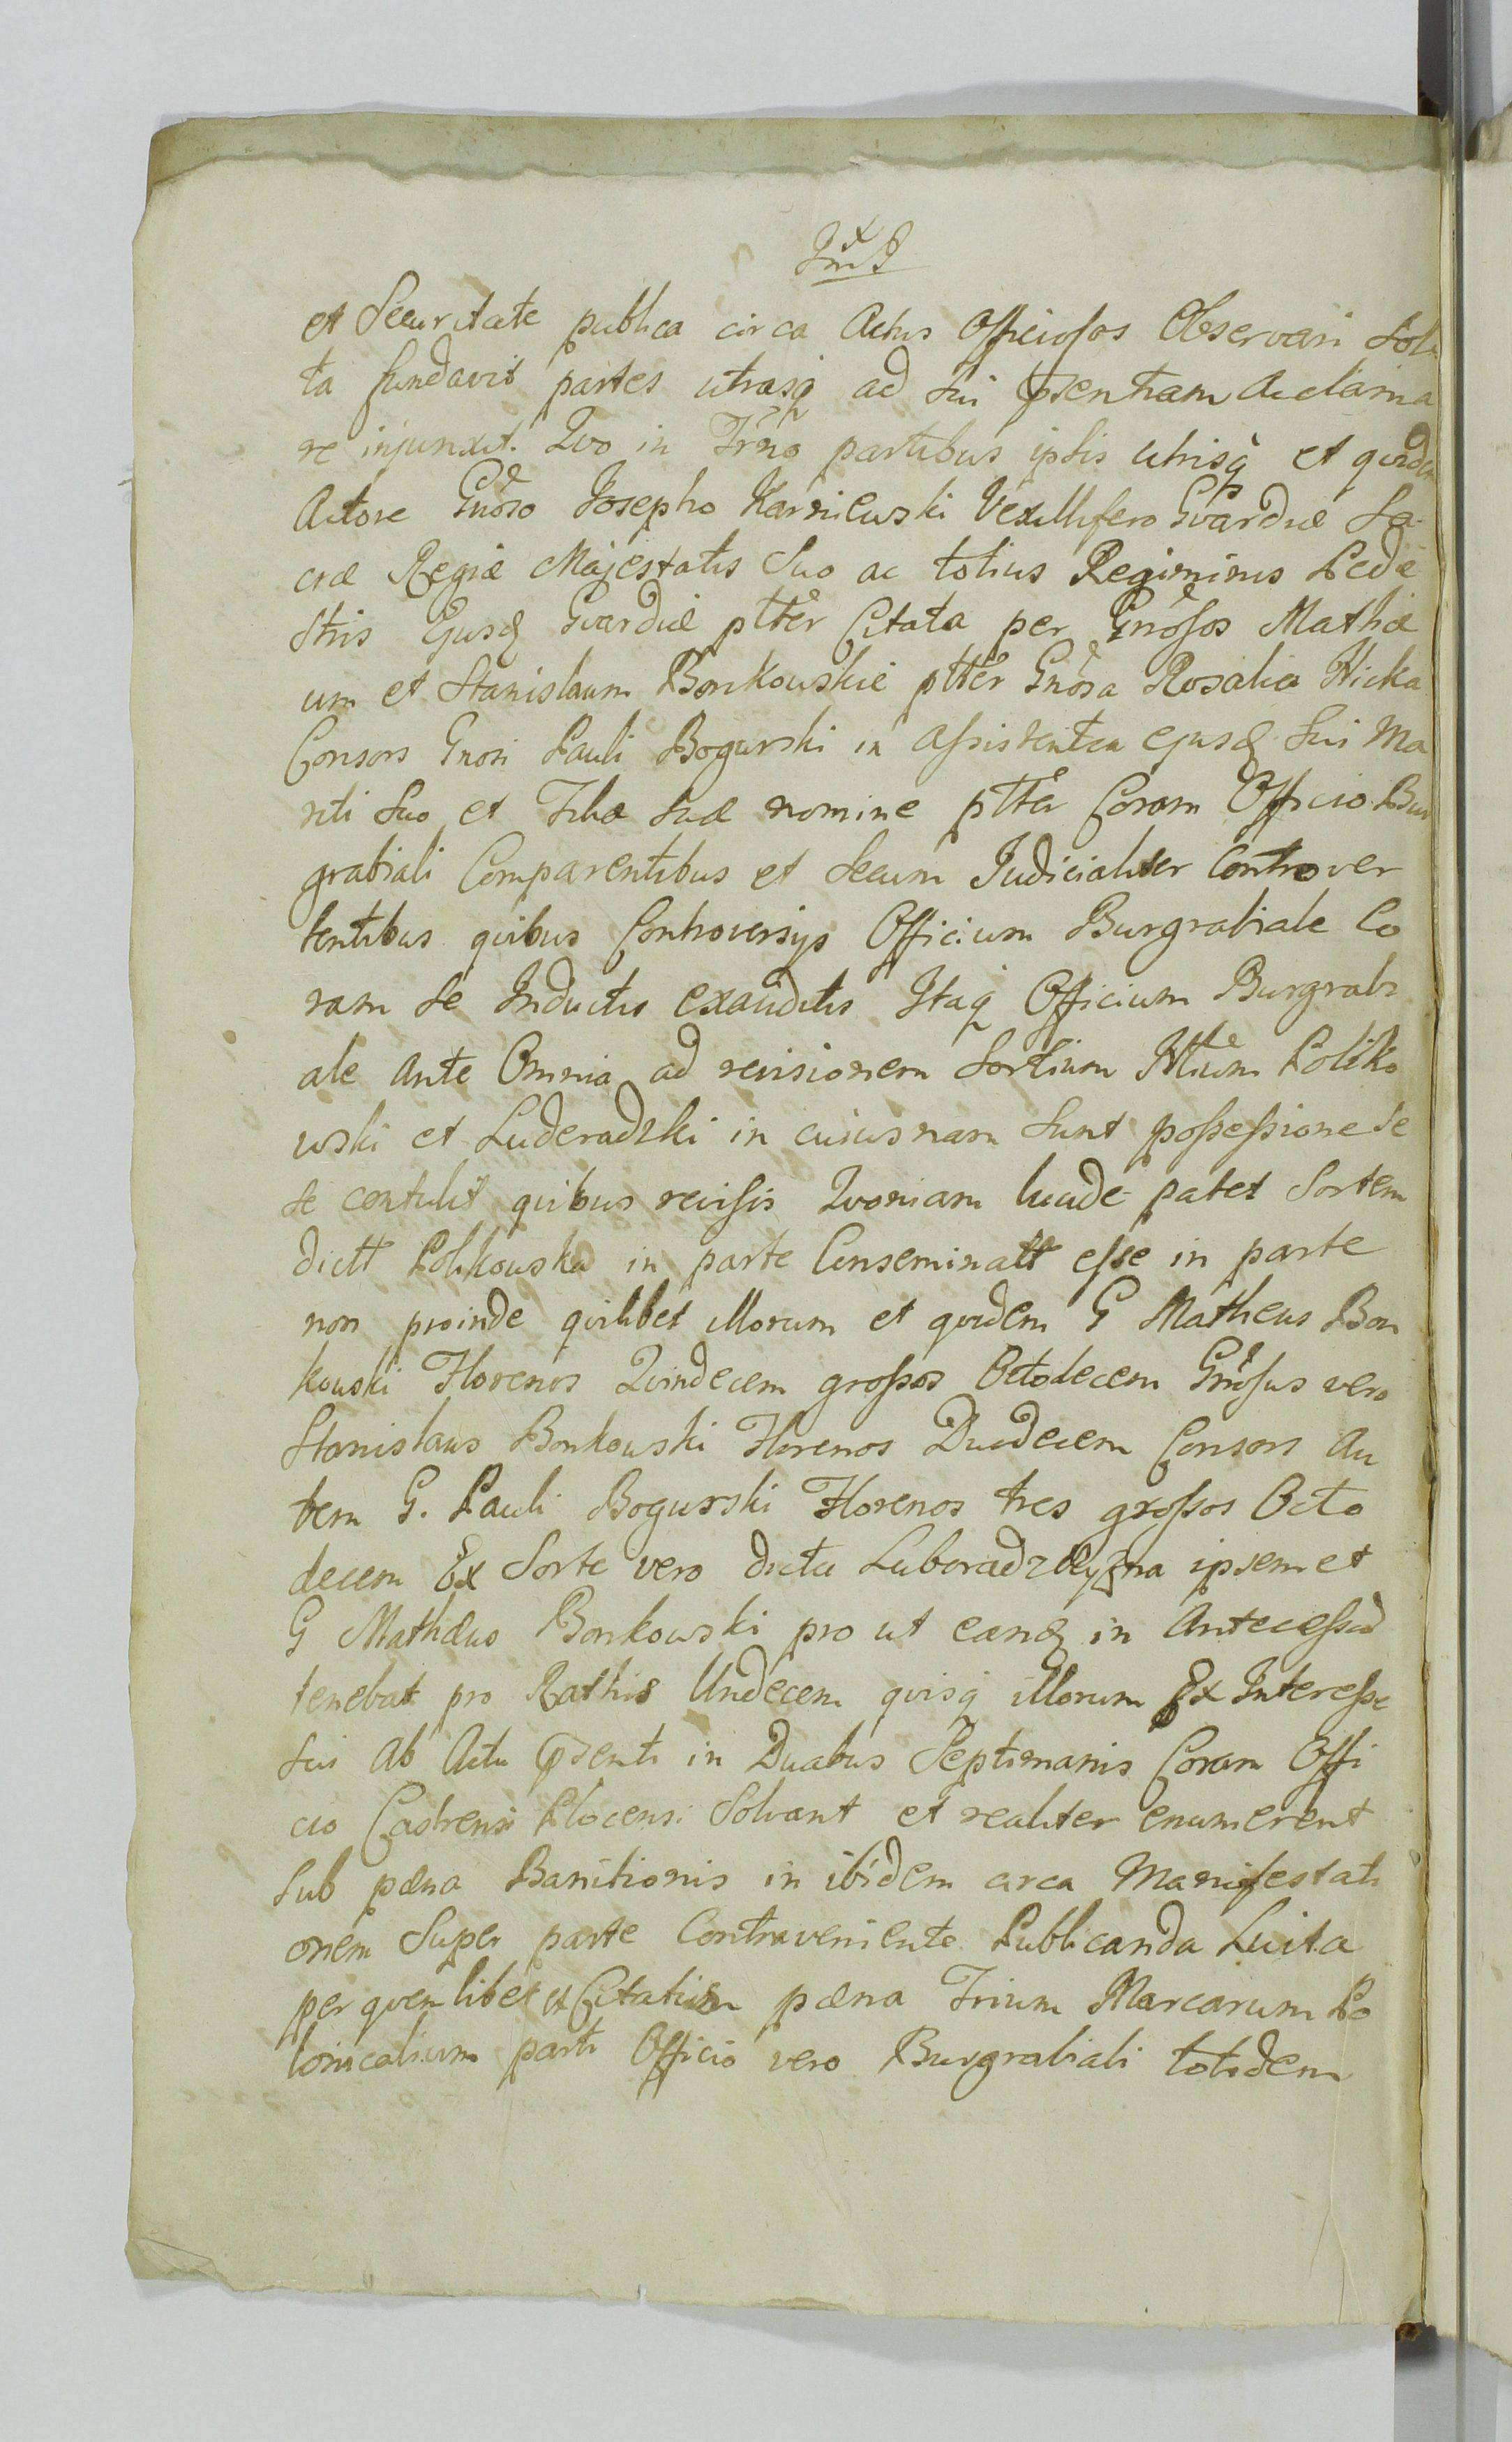 et Securitate publica circa Actus Officiosos Observari Soli
ta fundavit partes utrasq ad sui psentiam Acclama
re injunxit. Quo in Trno partibus ipsis utrisq et quidem
Actore Gnoso Josepho Karniewski Vexillifero Gvardiæ Sa
cræ Regiæ Majestatis Suo ac totius Regiminis Pede
stris Ejusd Gvardiæ ptter Citata per Gnosos Mathæ
um et Stanislaum Bonkowskie ptter Gnosa Rosalia Hicka
Consors Gnosi Pauli Bogurski in assistentia ejusd sui Ma
riti Suo et Filiæ suæ nomine ptter Coram Officio Bur
grabiali Comparentibus et Secum Judicialiter Controver
tentibus quibus Controversijs Officium Burgrabiale Co
ram se Inductis exauditis Itaq Officium Burgrabi
ale Ante Omnia ad revisionem Sortium Poliko
wski et Luberadzki in cuiusnam sunt possessione se
se contulit quibus revisis Quoniam lucide patet Sortem
dictt Polikowska in parte Conseminatt esse in parte
non proinde quilibet illorum et quidem G Matheus Bon
kowski Florenos Quindecem grossos Octodecem Gnosus vero
Stanislaus Bonkowski Florenos Duodecem Consors Au
tem G. Pauli Bogurski Florenos tres grossos Octo
decem Ex Sorte vero dicta Luboradzczyzna ipsemet
G Mathæus Bonkowski pro ut eand in Antecessu
tenebat pro Rathis Undecem quisq illorum Ex Interesse
sui ab Actu psenti in Duabus Septimanis Coram Offi
cio Castrensi Plocensi Solvant et realiter enumerent
sub pæna Banitionis in ibidem circa Manifestati
onem Super parte Contraveniente Publicanda Luita
per quemlibet Citatum pæna Trium Marcarum Po
lonicalium parti Officio vero Burgrabiali totidem